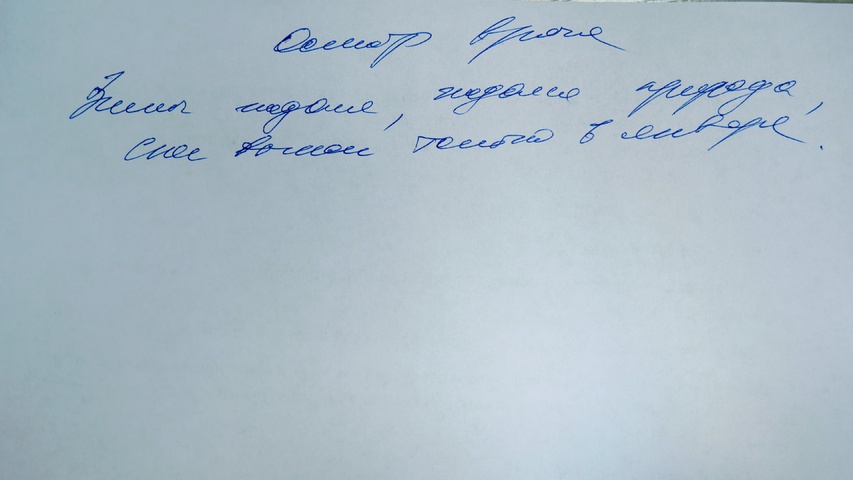 Осмотр врача
Зимы ждала, ждала природа,
Снег выпал только в январе.